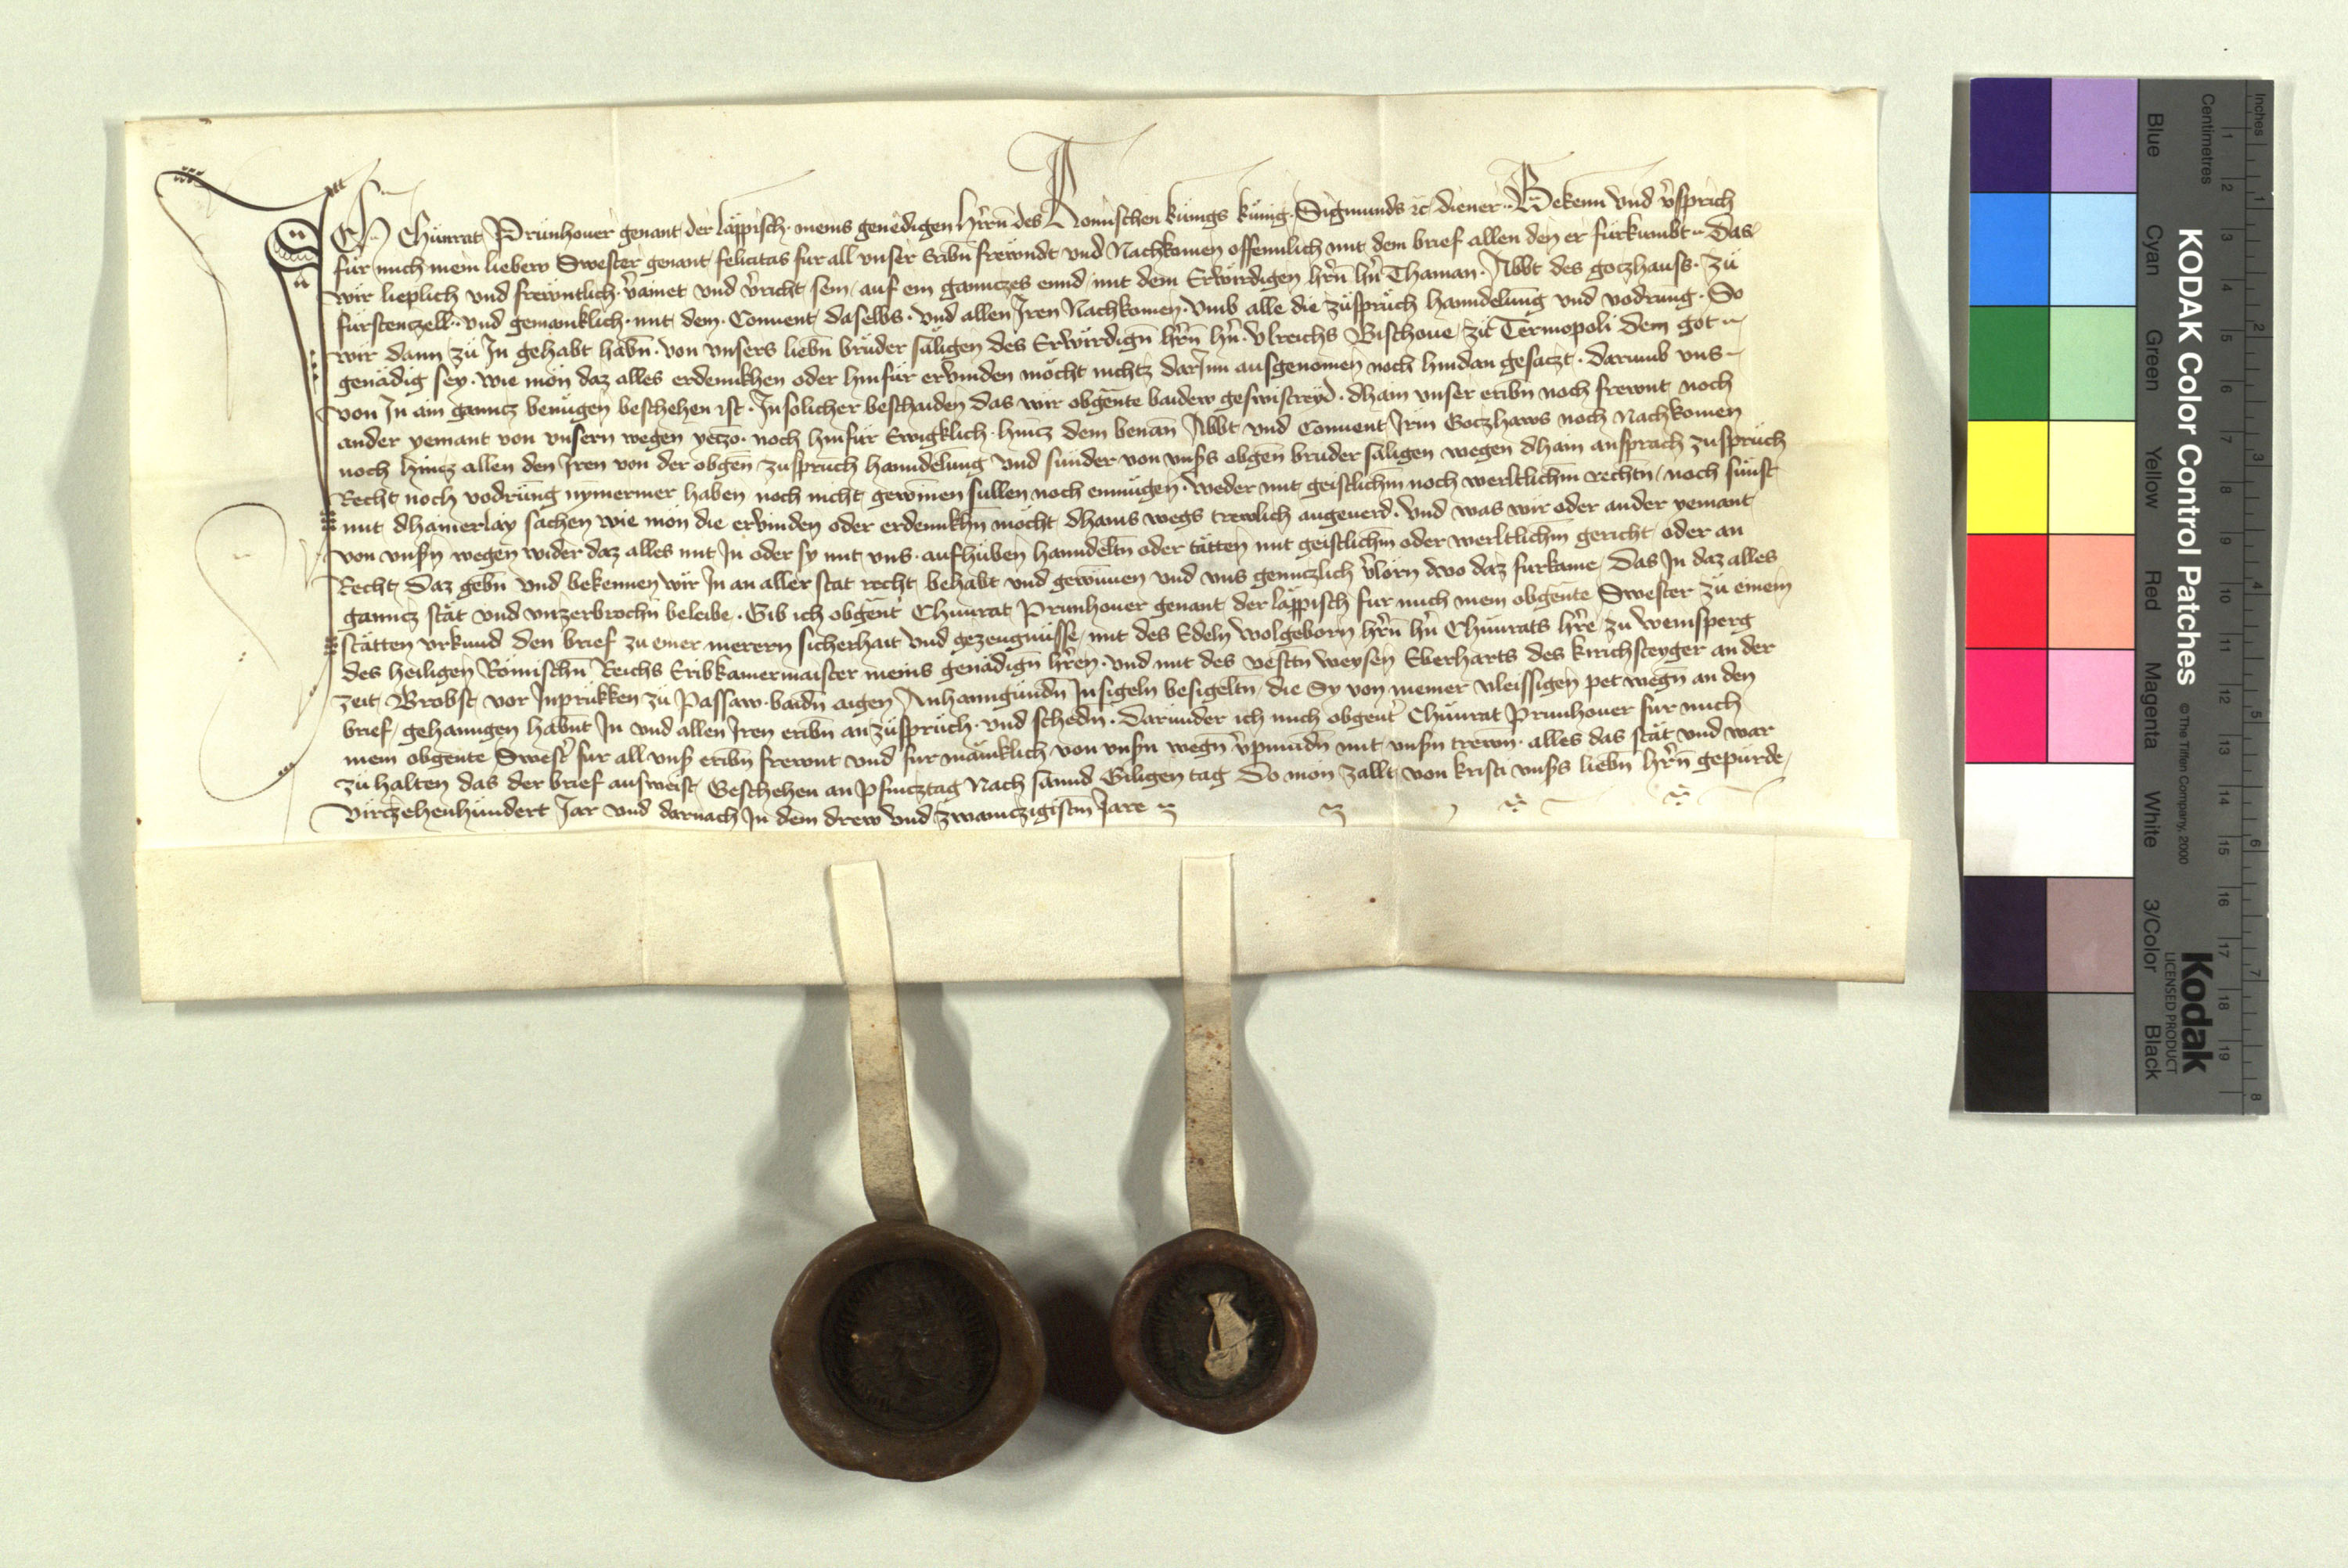 ICH Chůnrat Prünhouer genant der läppisch meins genedigen hrn̄ des Römischen künigs künig Sigmunds ꝛc diener Bekenn vnd v̄sprich
für mich mein liebew Swester genant felicitas für all vnser Eribn̄ frewndt vnd Nachkomen offennlich mit dem brief allen den er fürkumbt Das
wir lieplich vnd frewntlich v̄ainet vnd v̄richt sein auf ein ganntzes ennd mit dem Erwirdigen hrn̄ hn̄ Thaman Abbt des gotzhauss zů
fürstenczell vnd gemainklich mit dem Conuent daselbs vnd allen Iren Nachkomen Vmb alle die zůsprüch hanndelung vnd vodrung So
wir dann zů In gehabt habn̄ von vnsers liebn̄ brůder säligen des Erwirdign̄ hrn̄ hn̄ Vlreichs Bischoue zů Termopoli dem got
genädig sey wie mon daz alles erdennkhen oder hinfür ervinden möcht nichtz darInn ausgenomen noch hindan gesaczt darumb vns
von In ain gancz benügen beschehen ist In solicher beschaiden das wir obgēnte baidew geswistreyd dhain vnser eribn noch frewnt noch
ander yemant von vnsern wegen yeczo noch hinfür Ewigklich hincz dem benan̄ Abbt vnd Conuent Irm Goczhaws noch Nachkomen
noch hincz allen den Iren von der obgen̄ zuspruch hanndelung vnd sunder von vnsers obgen̄ bruder säligen wegen dhain ansprach zuspruch
Recht noch vodrung nymermer haben noch nicht gewinen süllen noch enmügen weder mit geistlichm̄ noch werltlichm̄ rechtn noch sünst
mit dhainerlay sachen wie mon die ervinden oder erdennkhn̄ möcht dhains wegs trewlich angeuerd Vnd was wir oder ander yemant
von vnsn̄ wegen wider daz alles mit In oder sy mit vns aufhüben hanndeltn̄ oder tätten mit geistlichm̄ oder werltlichm̄ gericht oder an
Recht Daz gebn̄ vnd bekennen wir In an aller stat recht behabt vnd gewunnen vnd vns genntzlich v̄lorn dwo daz fürkäme Das In daz alles
ganncz stät vnd vnzerbrochn̄ beleibe Gib ich obgēnt Chunrat Prunhouer genant der läppisch für mich mein obgēnte Swester zů einem
stätten vrkund den brief zu einer merern sicherhait vnd gezeugnüsse mit des Edeln wolgeborn hrn̄ hn̄ Chůnrats hr̄e zu weinsperg
des heiligen Römischn̄ Reichs Eribkamermaister meins genädign̄ hr̄en vnd mit des vestn̄ weysen Eberharts des kirichsteyger an der
zeit Brobst vor Inprukken zu Passaw baidn̄ aigen Anhanngundn̄ Insigeln besigeltn̄ die Sy von meiner vleissigen pet wegn̄ an den
brief gehanngen habnt In vnd allen Iren eribn̄ an zůsprüch vnd schedn̄ Darunder ich mich obgent̄ Chůnrat Prunhouer für mich
mein obgēnte Swest̄ für all vnser eribn̄ frewnt vnd für mänklich von vnsn̄ wegn̄ v̄pinndn̄ mit vnsn̄ trewn̄ alles das stät vnd war
zu halten das der brief ausweist Geschehen an Pfincztag Nach sannd Giligen tag Do mon zallt von kristi vnsers liebn̄ hrn̄ gepürde
virczehenhundert Jar vnd darnach In dem drew vnd zwainczigistm Jare
KODAK Color Control Patches
© The Tiffen Company, 2000
Kodak
LICENSED PRODUCT
Blue Cyan Green Yellow Red Magenta White 3/Color Black
Centimetres 1 2 3 4 5 6 7 8 9 10 11 12 13 14 15 16 17 18 19
Inches 1 2 3 4 5 6 7 8